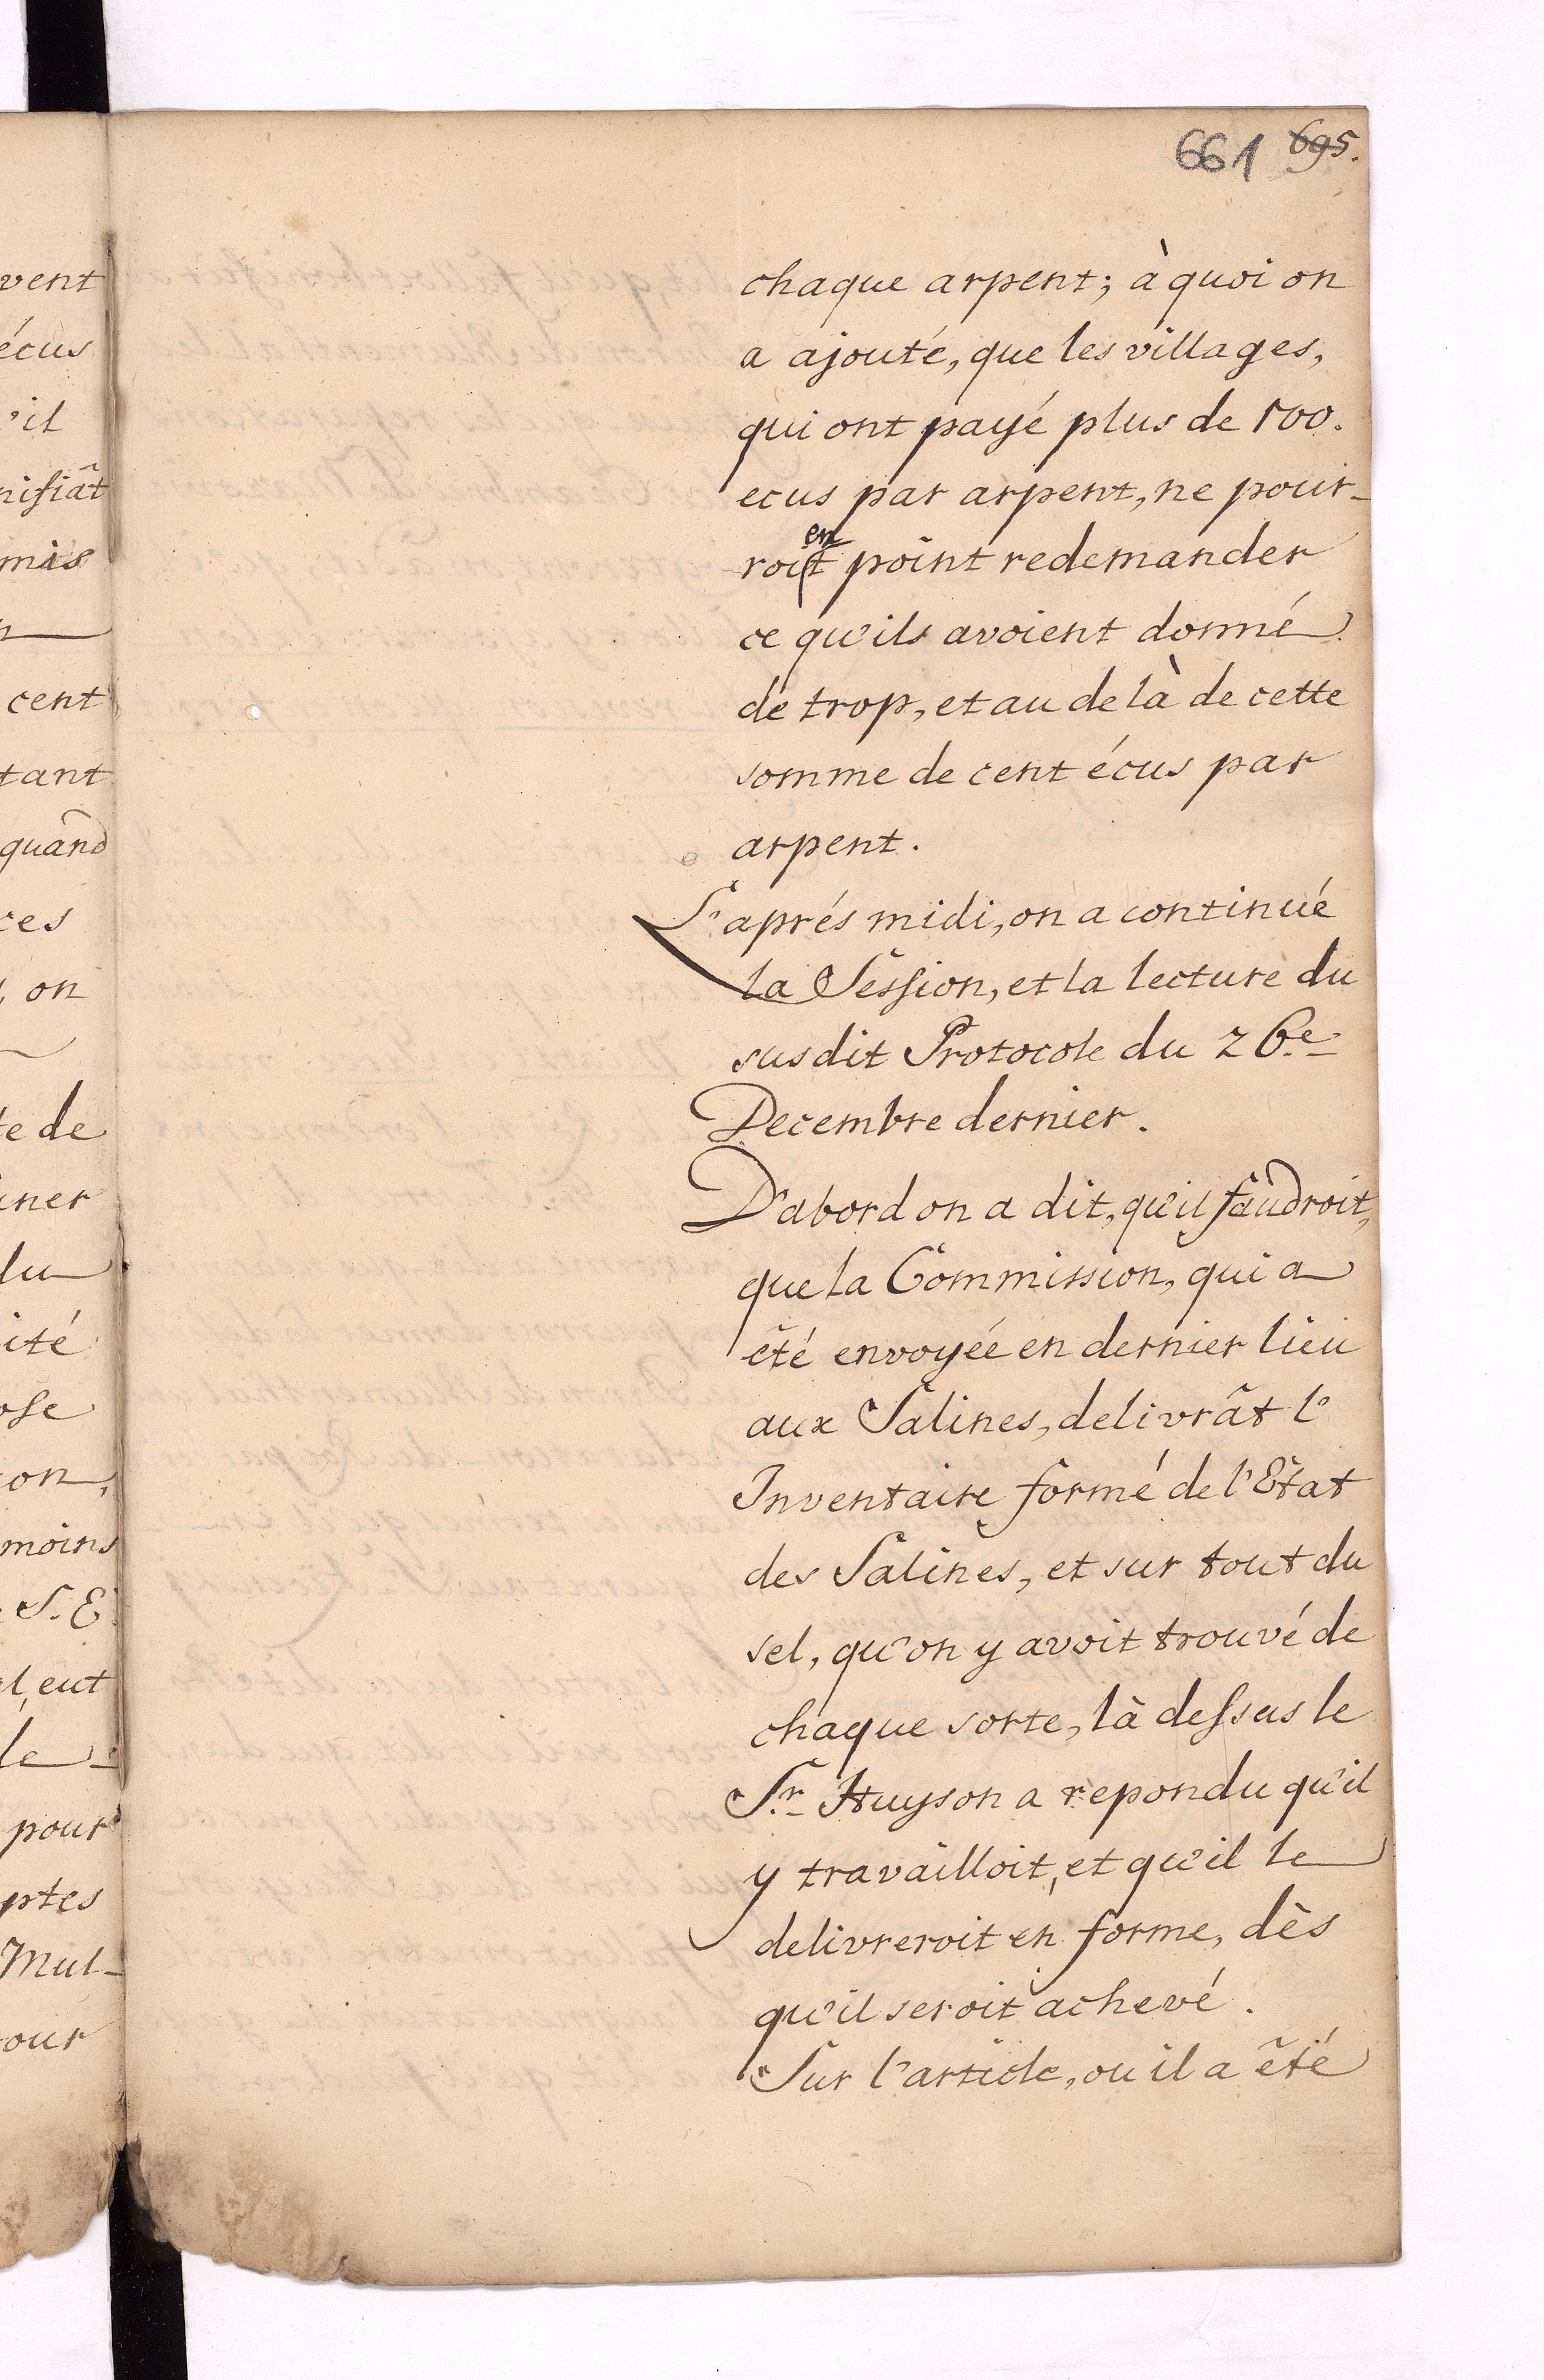 vent
écus
'il
nifiât
mis
cent
tant
quand
ces
, on
te de
iner
du
ité
ose
on,
moins
S. E.
el, eut
le
pour
ptes
Mul-
our
661 695.
chaque arpent; à quoi on
a ajouté, que les villages,
qui ont payé plus de 100.
ecus par arpent, ne pour-
roient point redemander
ce qu'ils avoient donné
de trop, et au de là de cette
somme de cent écus par
arpent.
L'aprés midi, on a continué
la Session, et la lecture du
susdit Protocole du 26.e
Decembre dernier.
D'abord on a dit, qu'il faudroit,
que la Commission, qui a
été envoyée en dernier lieu
aux Salines, delivrât l'
Inventaire formé de l'Etat
des Salines, et sur tout du
sel, qu'on y avoit trouvé de
chaque sorte, là dessus le
S.r Huyson a repondu qu'il
y travailloit, et qu'il le
delivreroit en forme, dès
qu'il seroit achevé.
Sur l'article, ou il a été